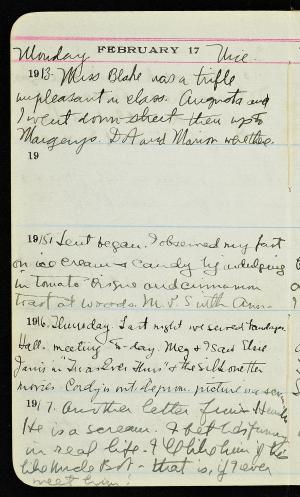 Monday FEBRUARY 17 Nice.
1913. Miss Blake was a trifle
unpleasant in class. Augusta and
I went down street then up to
Margery's. D A and Marion were there.
19
1915 Lent began. I observed my fast
on ice cream & candy by indulging
in tomato bisque and cinnamon
toast at Woods. M. P. Smith Ann.
1916 Thursday. Last night we served
Hall meeting. To-day Meg & I saw Elsie
Janis in "'Twas Ever Thus" & the silhouette
movies. Cordy's out. picture was
1917. Another letter from
He is a scream. I bet he's funny
in real life. I'll like him if he's
like Uncle Bot - that is, if I ever
meet him!